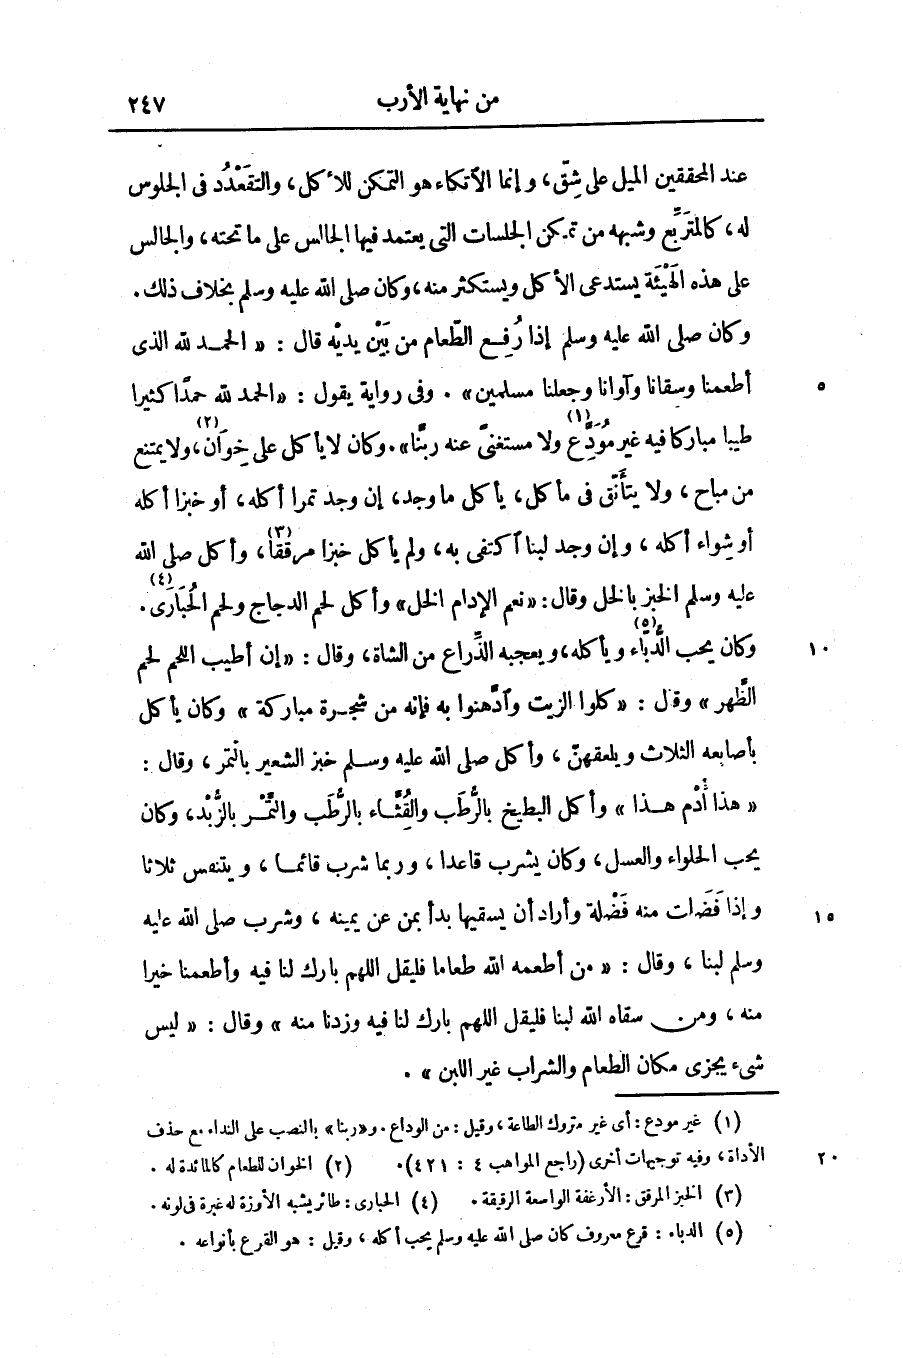 من نهاية الأرب ٢٤٧
عند المحققين الميل على شِقّ، وإنما الاتكاء هو التمكن للأكل، والتقَعْدُد فى الجلوس
له، كالمتَرَبِّع وشبهه من تمكن الجلسات التى يعتمد فيها الجالس على ما تحته، والجالس
على هذه الهَيْئَة يستدعى الأكل ويستكثر منه، وكان صلى الله عليه وسلم بخلاف ذلك.
وكان صلى الله عليه وسلم إذا رُفِع الطّعام من بَيْن يديْه قال : « الحمد لله الذى
٥ أطعمنا وسقانا وآوانا وجعلنا مسلمين» . وفى رواية يقول : «الحمد لله حمدًا كثيرا
طيبا مباركا فيه غير مُودَّع (١) ولا مستغنىً عنه ربَّنا». وكان لا يأكل على خِوَان (٢)، ولا يمتنع
من مباح، ولا يتأَنّق فى مأكل، يأكل ما وجد، إن وجد تمرا أكله، أو خبزا أكله
أو شِواء أكله، وإن وجد لبنا اكتفى به، ولم يأكل خبزا مرققًا (٣)، وأكل صلى الله
عليه وسلم الخبز بالخل وقال: «نعم الإدام الخل» وأكل لحم الدجاج ولحم الحُبَارَى (٤).
١٠ وكان يحب الدُّبّاء (٥) ويأكله، ويعجبه الذِّراع من الشاة، وقال : «إن أطيب اللحم لحم
الظَّهر» وقال : «كلوا الزيت وادَّهنوا به فإنه من شجرة مباركة » وكان يأكل
بأصابعه الثلاث ويلعقهنّ، وأكل صلى الله عليه وسلم خبز الشعير بالتمر، وقال :
« هذا أُدْم هذا » وأكل البطيخ بالرُّطَب والقِثَّاء بالرُّطَب والتَّمْر بالزُّبْد، وكان
يحب الحلواء والعسل، وكان يشرب قاعدا، وربما شرب قائما، ويتنفس ثلاثا
١٥ وإذا فَضَلت منه فَضْلة وأراد أن يسقيها بدأ بمن عن يمينه، وشرب صلى الله عليه
وسلم لبنا، وقال : « من أطعمه الله طعاما فليقل اللهم بارك لنا فيه وأطعمنا خيرا
منه، ومن سقاه الله لبنا فليقل اللهم بارك لنا فيه وزدنا منه » وقال : « ليس
شىء يجزى مكان الطعام والشراب غير اللبن » .
(١) غير مودع : أى غير متروك الطاعة، وقيل : من الوداع . و«ربنا» بالنصب على النداء مع حذف
٢٠ الأداة، وفيه توجيهات أخرى (راجع المواهب ٤ : ٤٢١). (٢) الخوان للطعام كالمائدة له .
(٣) الخبز المرقق : الأرغفة الواسعة الرقيقة . (٤) الحبارى : طائر يشبه الأوزة له غبرة فى لونه .
(٥) الدباء : قرع معروف كان صلى الله عليه وسلم يحب أكله، وقيل : هو القرع بأنواعه .